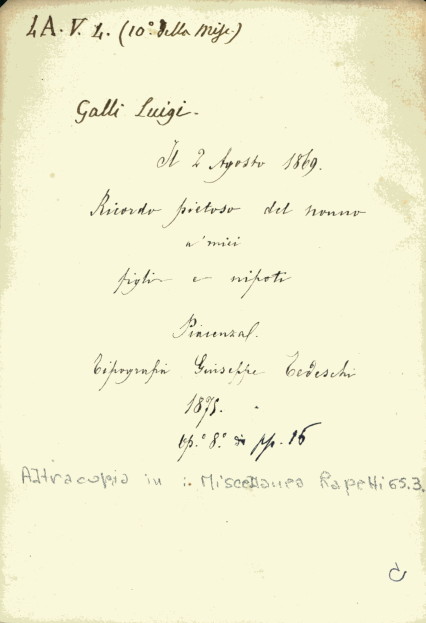 LA. V. L. (10° della Misc.)
Galli Luigi.
Il 2 Agosto 1869.
Ricordo pietoso del nonno
a' miei
figli e nipoti
Piacenza.
Tipografia Giuseppe Tedeschi
1875.
op.° 8.° di pp. 16
Altra copia in : Miscellanea Rapetti 65.3.